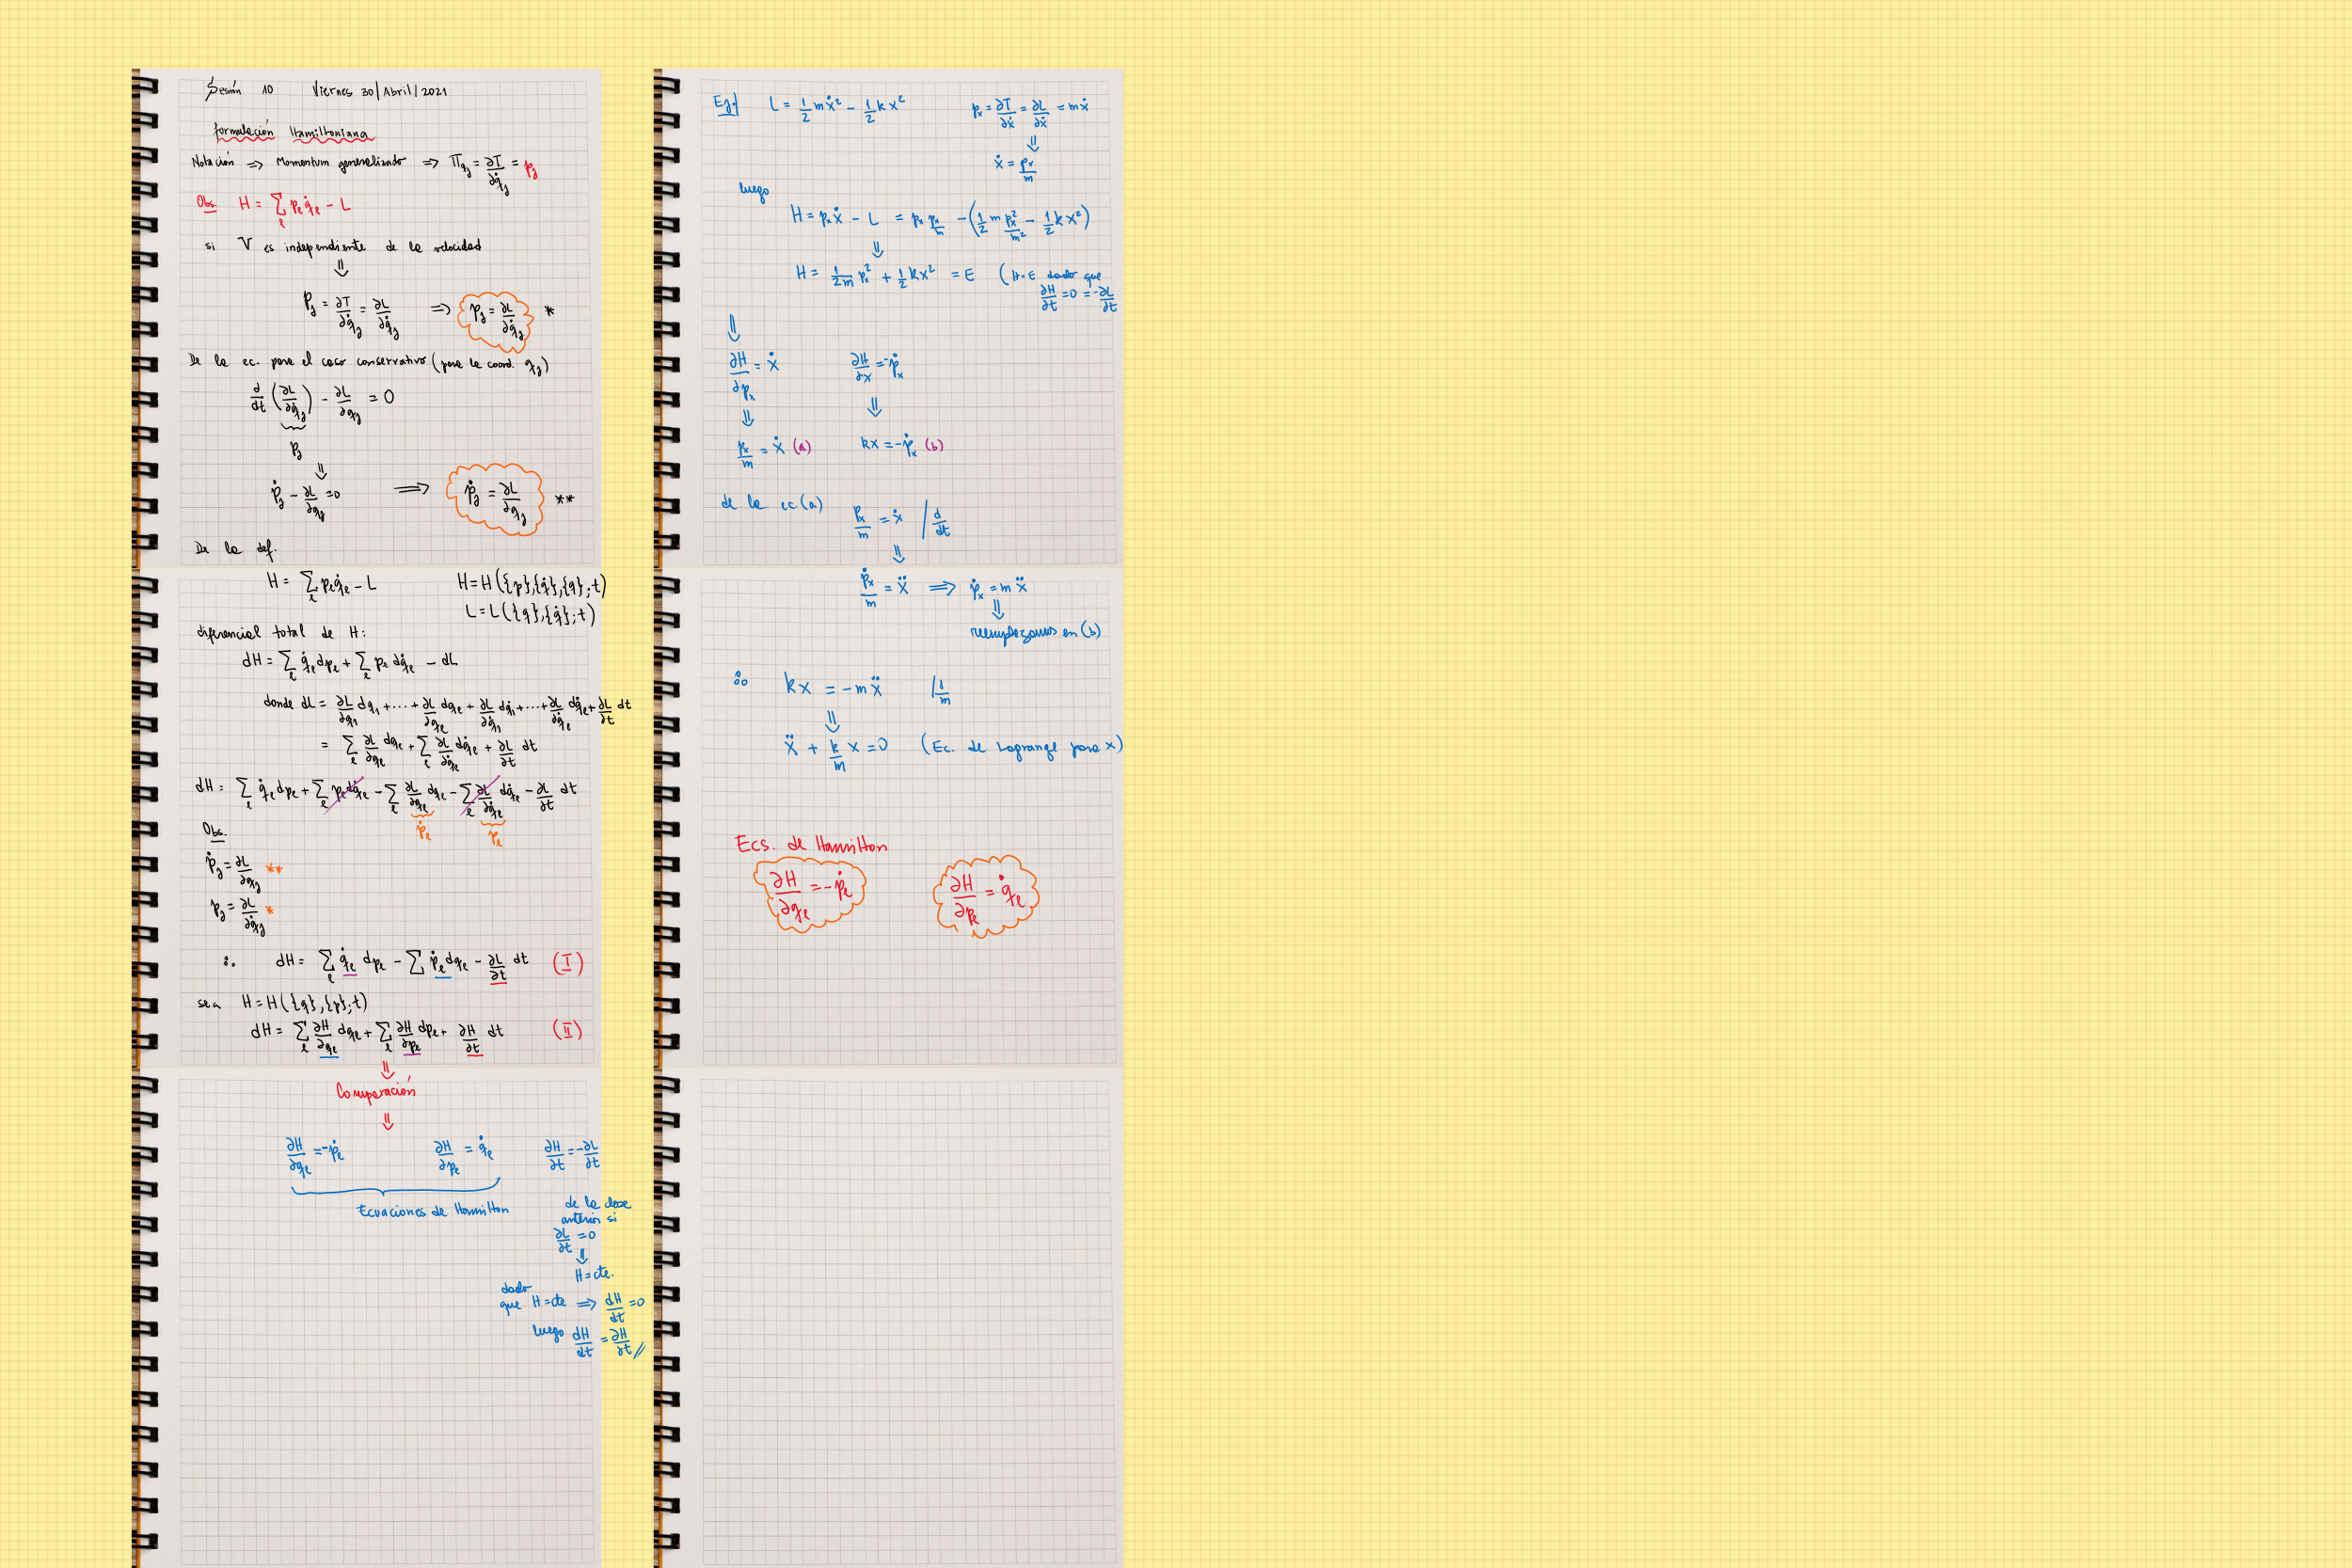 Sesión 10 Viernes 30/Abril/2021
Formulación Hamiltoniana
Notación ⇒ Momentum generalizado ⇒ Π_{q_j} = ∂T/∂q̇_j = p_j
Obs. H = Σ_ℓ p_ℓ q̇_ℓ − L
si V es independiente de la velocidad
⇓
p_j = ∂T/∂q̇_j = ∂L/∂q̇_j ⇒ p_j = ∂L/∂q̇_j *
De la ec. para el caso conservativo (para la coord. q_j)
d/dt (∂L/∂q̇_j) − ∂L/∂q_j = 0
p_j
⇓
ṗ_j − ∂L/∂q_j = 0 ⟹ ṗ_j = ∂L/∂q_j **
De la def.
H = Σ_ℓ p_ℓ q̇_ℓ − L H = H({p},{q̇},{q};t)
L = L({q},{q̇};t)
diferencial total de H:
dH = Σ_ℓ q̇_ℓ dp_ℓ + Σ_ℓ p_ℓ dq̇_ℓ − dL
donde dL = ∂L/∂q_1 dq_1 + ... + ∂L/∂q_ℓ dq_ℓ + ∂L/∂q̇_1 dq̇_1 + ... + ∂L/∂q̇_ℓ dq̇_ℓ + ∂L/∂t dt
= Σ_ℓ ∂L/∂q_ℓ dq_ℓ + Σ_ℓ ∂L/∂q̇_ℓ dq̇_ℓ + ∂L/∂t dt
dH = Σ_ℓ q̇_ℓ dp_ℓ + Σ_ℓ p_ℓ dq̇_ℓ − Σ_ℓ ∂L/∂q_ℓ dq_ℓ − Σ_ℓ ∂L/∂q̇_ℓ dq̇_ℓ − ∂L/∂t dt
ṗ_ℓ p_ℓ
Obs.
ṗ_j = ∂L/∂q_j **
p_j = ∂L/∂q̇_j *
∴ dH = Σ_ℓ q̇_ℓ dp_ℓ − Σ ṗ_ℓ dq_ℓ − ∂L/∂t dt (I)
sea H = H({q},{p};t)
dH = Σ_ℓ ∂H/∂q_ℓ dq_ℓ + Σ_ℓ ∂H/∂p_ℓ dp_ℓ + ∂H/∂t dt (II)
⇓
Comparación
⇓
∂H/∂q_ℓ = −ṗ_ℓ ∂H/∂p_ℓ = q̇_ℓ ∂H/∂t = −∂L/∂t
Ecuaciones de Hamilton
de la clase
anterior si
∂L/∂t = 0
⇓
H = cte.
dado
que H = cte ⟹ dH/dt = 0
luego dH/dt = ∂H/∂t //
Ej. L = 1/2 mẋ² − 1/2 kx² p_x = ∂T/∂ẋ = ∂L/∂ẋ = mẋ
⇓
ẋ = p_x/m
luego
H = p_x ẋ − L = p_x p_x/m − (1/2 m p_x²/m² − 1/2 kx²)
⇓
H = 1/2m p_x² + 1/2 kx² = E (H=E dado que
∂H/∂t = 0 = −∂L/∂t
⇓
∂H/∂p_x = ẋ ∂H/∂x = −ṗ_x
⇓ ⇓
p_x/m = ẋ (a) kx = −ṗ_x (b)
de la ec.(a) p_x/m = ẋ / d/dt
⇓
ṗ_x/m = ẍ ⟹ ṗ_x = mẍ
⇓
reemplazamos en (b)
∴ kx = −mẍ /1/m
⇓
ẍ + k/m x = 0 (Ec. de Lagrange para x)
Ecs. de Hamilton
∂H/∂q_ℓ = −ṗ_ℓ ∂H/∂p_ℓ = q̇_ℓ